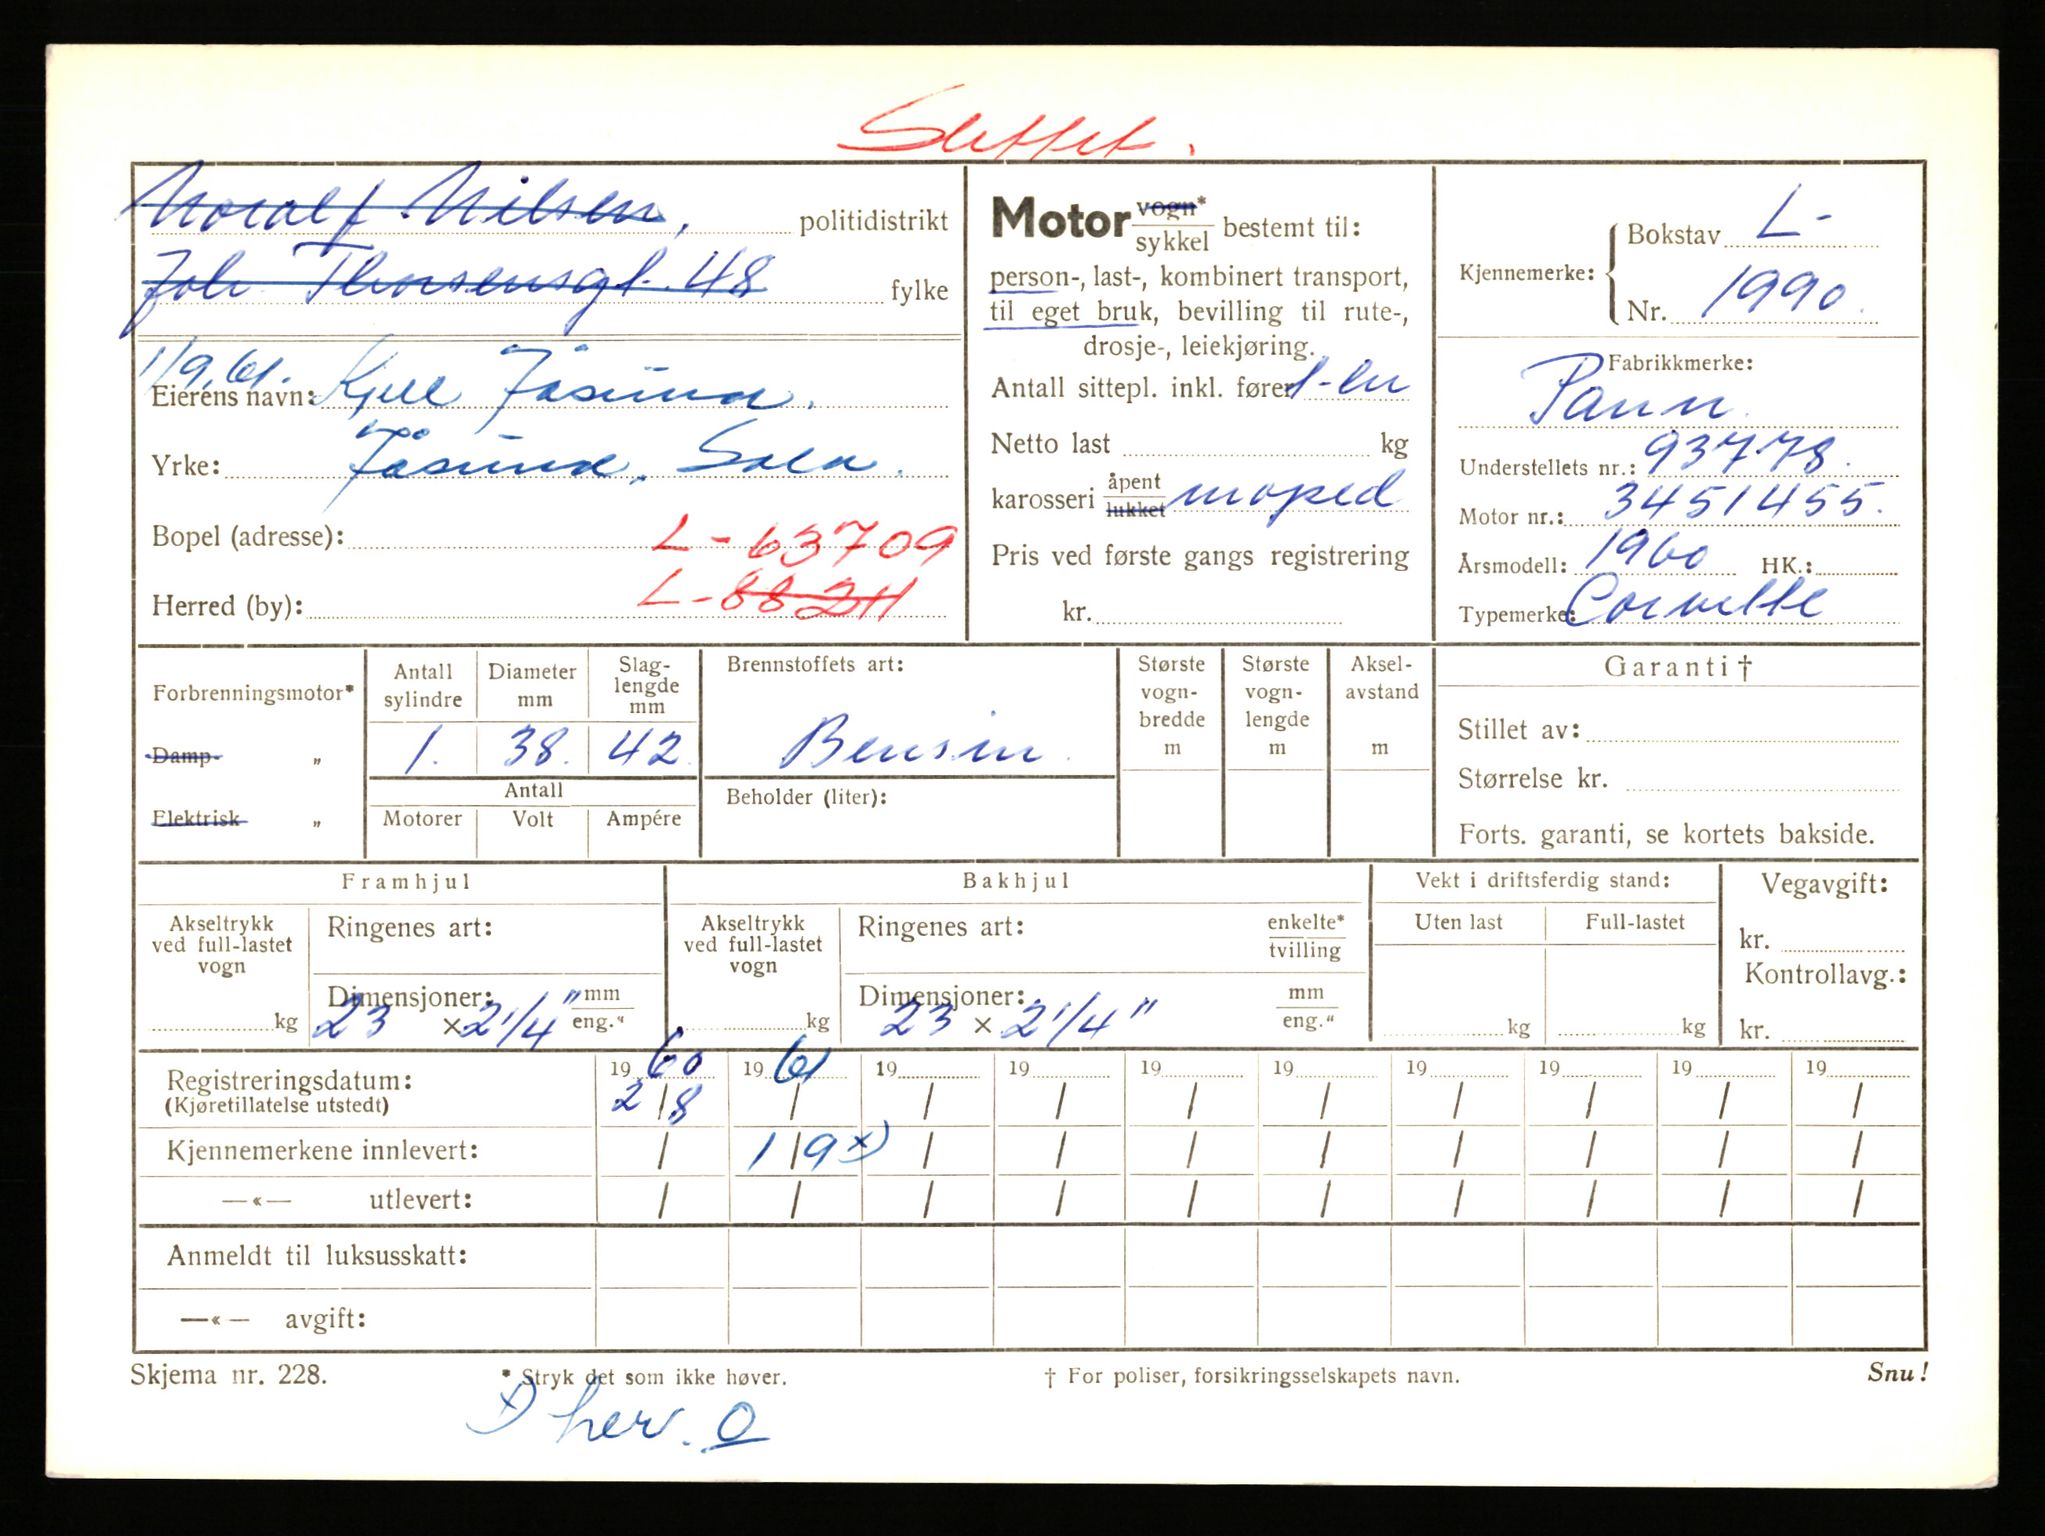 Slettet.
Noralf Nilsen, politidistrikt
Joh Thorsensgt. 48 fylke
1/9.61.
Eierens navn: Kjell Jåsund.
Yrke: Jåsund, Sola.
Bopel (adresse): L-63709
Herred (by): L-88211
Motor vogn* / sykkel bestemt til:
person-, last-, kombinert transport,
til eget bruk, bevilling til rute-,
drosje-, leiekjøring.
Antall sittepl. inkl. fører 1-en
Netto last kg
karosseri åpent / lukket moped
Pris ved første gangs registrering
kr.
Kjennemerke: Bokstav L-
Nr. 1990.
Fabrikkmerke:
Pann
Understellets nr.: 93778.
Motor nr.: 3451455.
Årsmodell: 1960 HK.:
Typemerke: Corvette
Forbrenningsmotor*
Damp "
Elektrisk "
Antall sylindre
Diameter mm
Slag-lengde mm
1. 38. 42.
Antall
Motorer Volt Ampére
Brennstoffets art:
Bensin.
Beholder (liter):
Største vogn-bredde m
Største vogn-lengde m
Aksel-avstand m
Garanti †
Stillet av:
Størrelse kr.
Forts. garanti, se kortets bakside.
Framhjul
Akseltrykk ved full-lastet vogn
kg
Ringenes art:
Dimensjoner: mm / eng."
23 x 2 1/4"
Bakhjul
Akseltrykk ved full-lastet vogn
kg
Ringenes art: enkelte* / tvilling
Dimensjoner: mm / eng."
23 x 2 1/4"
Vekt i driftsferdig stand:
Uten last Full-lastet
kg kg
Vegavgift:
kr.
Kontrollavg.:
kr.
1960 1961 19 19 19 19 19 19 19 19
Registreringsdatum: 2/8 / / / / / / / / /
(Kjøretillatelse utstedt)
Kjennemerkene innlevert: / 1/9 x) / / / / / / / /
—«— utlevert: / / / / / / / / / /
Anmeldt til luksusskatt:
—«— avgift:
Skjema nr. 228. * Stryk det som ikke høver. † For poliser, forsikringsselskapets navn. Snu!
x) her. O